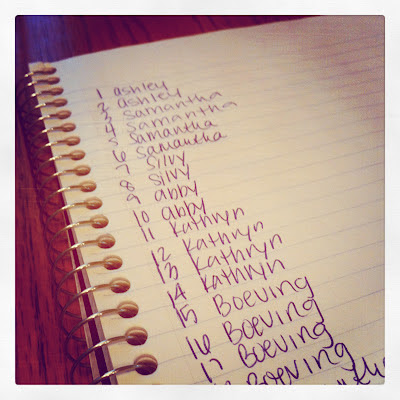 1 ashley
2 ashley
3 samantha
4 samantha
5 samantha
6 samantha
7 silvy
8 silvy
9 abby
10 abby
11 Kathryn
12 Kathryn
13 Kathryn
14 Kathryn
15 Boeving
16 Boeving
17 Boeving
Boeving